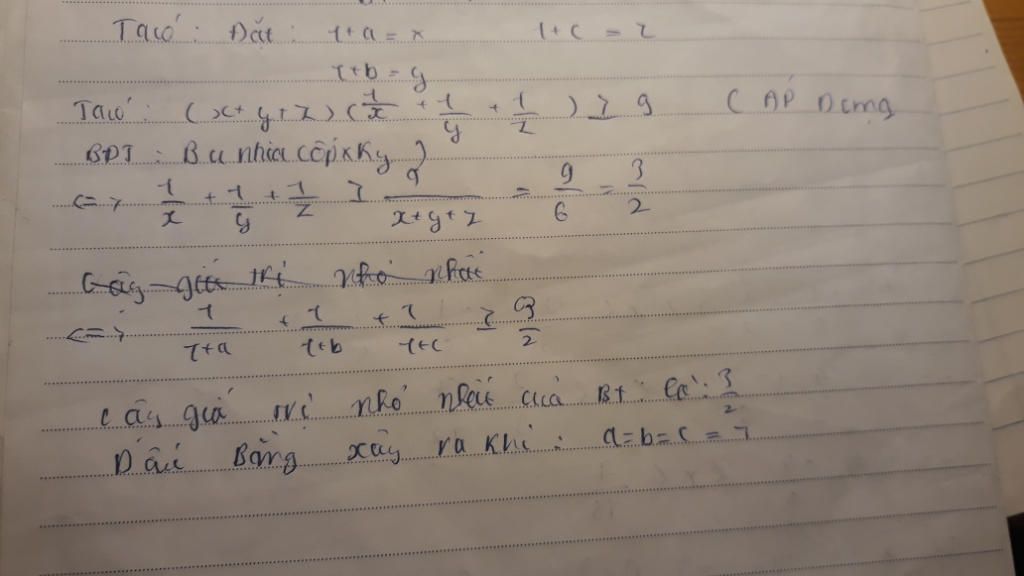 Ta có : Đặt : 1+a = x 1+c = z
1+b = y
Ta có : (x+y+z)(1/x + 1/y + 1/z) ≥ 9 ( ÁP Dụng
BĐT : Bu nhia cốp x Ky )
<=> 1/x + 1/y + 1/z ≥ 9/(x+y+z) = 9/6 = 3/2
giá trị nhỏ nhất
<=> 1/(1+a) + 1/(1+b) + 1/(1+c) ≥ 3/2
Vậy giá trị nhỏ nhất của BT : là : 3/2
Dấu Bằng xảy ra khi : a=b=c = 1